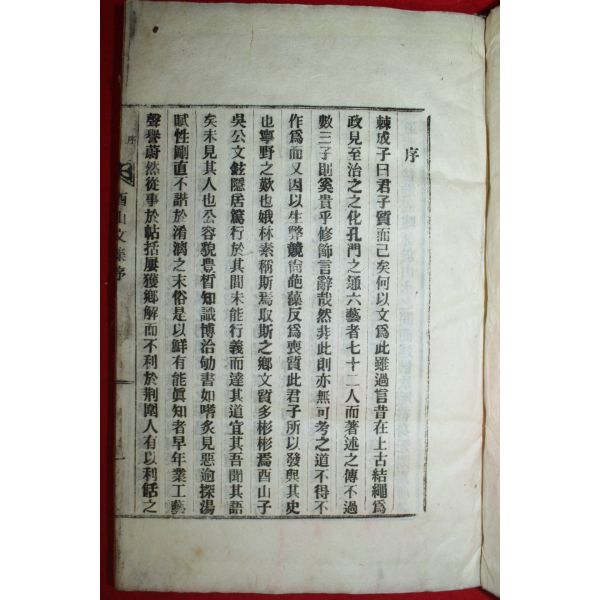 序
棘成子曰君子質而已矣何以文為此雖過言昔在上古結繩為
政見至治之之化孔門之通六藝者七十二人而著述之傳不過
數三子則奚貴乎修飾言辭哉然非此則亦無可考之道不得不
作為而又因以生弊競尙葩藻反為喪質此君子所以發與其史
也寧野之歎也娥林素稱斯焉取斯之鄕文質多彬彬焉酉山子
吳公文鉉隱居篤行於其間未能行義而達其道宜其吾聞其語
矣未見其人也公容貌豊皙知識博洽劬書如嗜炙見惡逾探湯
賦性剛直不諧於淆漓之末俗是以鮮有能眞知者早年業工藝
聲譽蔚然從事於帖括屢獲鄕解而不利於荆圍人有以利餂之
序
酉山文集序
一